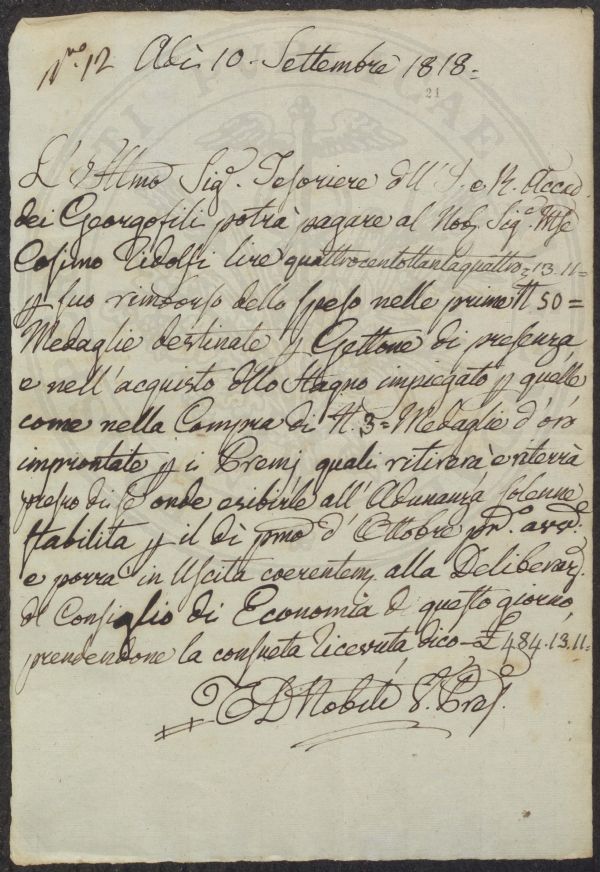 N.ro 12 Adì 10. Settembre 1818=
21
L'Illmo Sig.r Tesoriere dll' I. e R. Accad.
dei Georgofili potrà pagare al Nob. Sig.re Mse
Cosimo Ridolfi lire quattrocentottantaquattro=13.11=
p suo rimborso dello speso nelle prime N 50=
Medaglie destinate p Gettone di presenza
e nell'acquisto dllo stagno impiegato p quelle
come nella Compra di N. 3= Medaglie d'oro
improntate p i Premj quali ritirerà e riterrà
presso di se onde esibirle all'Adunanza solenne
stabilita p il dì pmo d'Ottobre
e porrà in Uscita coerentem. alla Deliberaz.
dl Consiglio di Economia di questo giorno,
prendendone la consueta ricevuta dico - £ 484.13.11=
Nobili
TI PUBLICAE